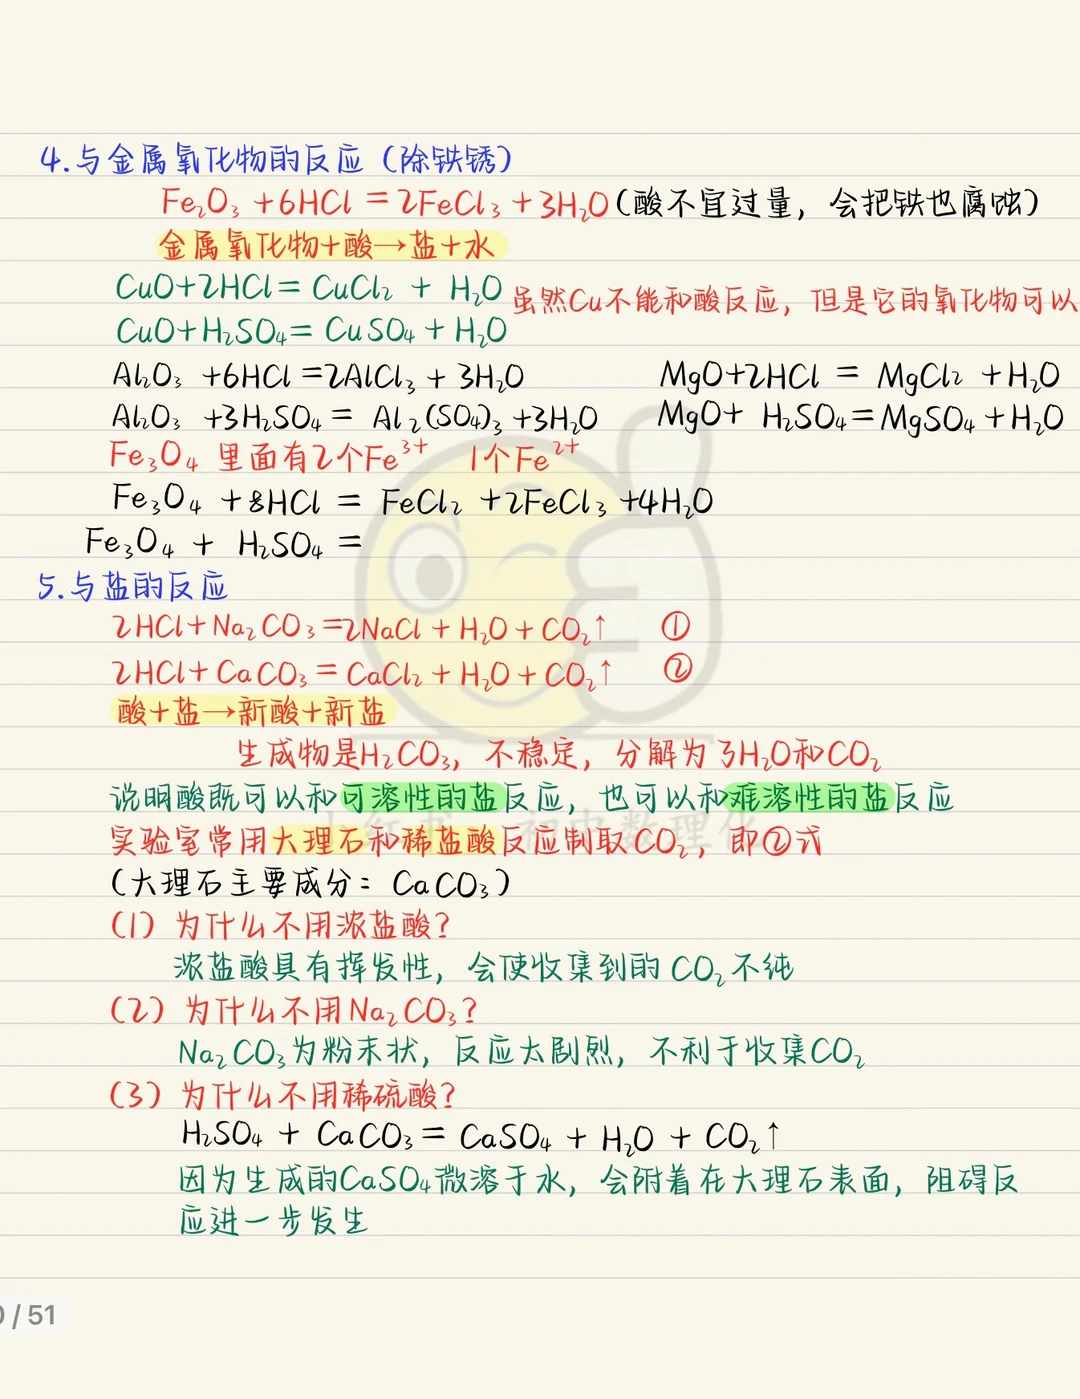 4.与金属氧化物的反应（除铁锈）
Fe₂O₃ +6HCl =2FeCl₃ +3H₂O（酸不宜过量，会把铁也腐蚀）
金属氧化物+酸→盐+水
CuO+2HCl= CuCl₂ + H₂O 虽然Cu不能和酸反应，但是它的氧化物可以
CuO+H₂SO₄= CuSO₄ + H₂O
Al₂O₃ +6HCl =2AlCl₃ + 3H₂O MgO+2HCl = MgCl₂ +H₂O
Al₂O₃ +3H₂SO₄ = Al₂(SO₄)₃ +3H₂O MgO+ H₂SO₄=MgSO₄ +H₂O
Fe₃O₄ 里面有2个Fe³⁺ 1个Fe²⁺
Fe₃O₄ +8HCl = FeCl₂ +2FeCl₃ +4H₂O
Fe₃O₄ + H₂SO₄ =
5.与盐的反应
2HCl+Na₂CO₃=2NaCl + H₂O + CO₂↑ ①
2HCl+CaCO₃=CaCl₂ + H₂O + CO₂↑ ②
酸+盐→新酸+新盐
生成物是H₂CO₃，不稳定，分解为了H₂O和CO₂
说明酸既可以和可溶性的盐反应，也可以和难溶性的盐反应
小红书 初中数理化
实验室常用大理石和稀盐酸反应制取CO₂，即②式
（大理石主要成分：CaCO₃）
（1）为什么不用浓盐酸？
浓盐酸具有挥发性，会使收集到的CO₂不纯
（2）为什么不用Na₂CO₃？
Na₂CO₃为粉末状，反应太剧烈，不利于收集CO₂
（3）为什么不用稀硫酸？
H₂SO₄ + CaCO₃= CaSO₄ + H₂O + CO₂↑
因为生成的CaSO₄微溶于水，会附着在大理石表面，阻碍反
应进一步发生
/ 51